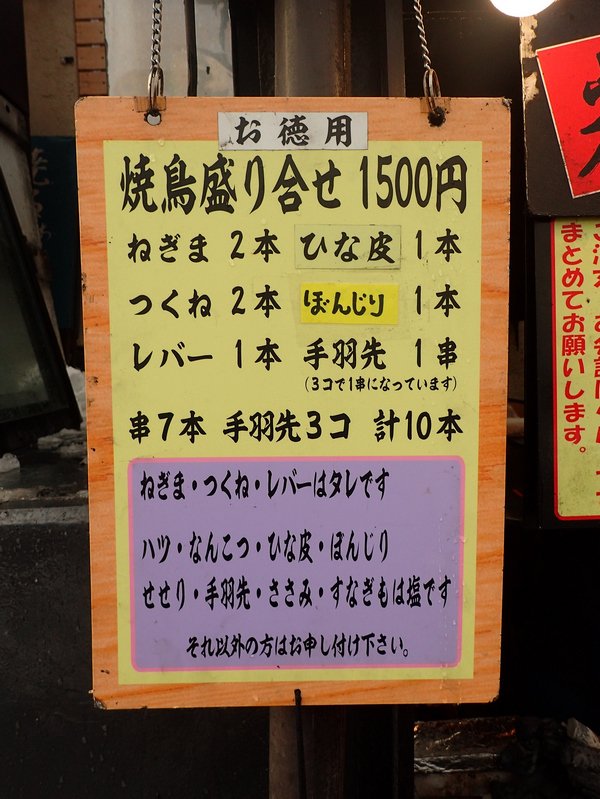 お徳用
焼鳥盛り合せ 1500円
ねぎま 2本 ひな皮 1本
つくね 2本 ぼんじり 1本
レバー 1本 手羽先 1串
(3コで1串になっています)
串7本 手羽先3コ 計10本
ねぎま・つくね・レバーはタレです
ハツ・なんこつ・ひな皮・ぼんじり
せせり・手羽先・ささみ・すなぎもは塩です
それ以外の方はお申し付け下さい。
まとめてお願いします。